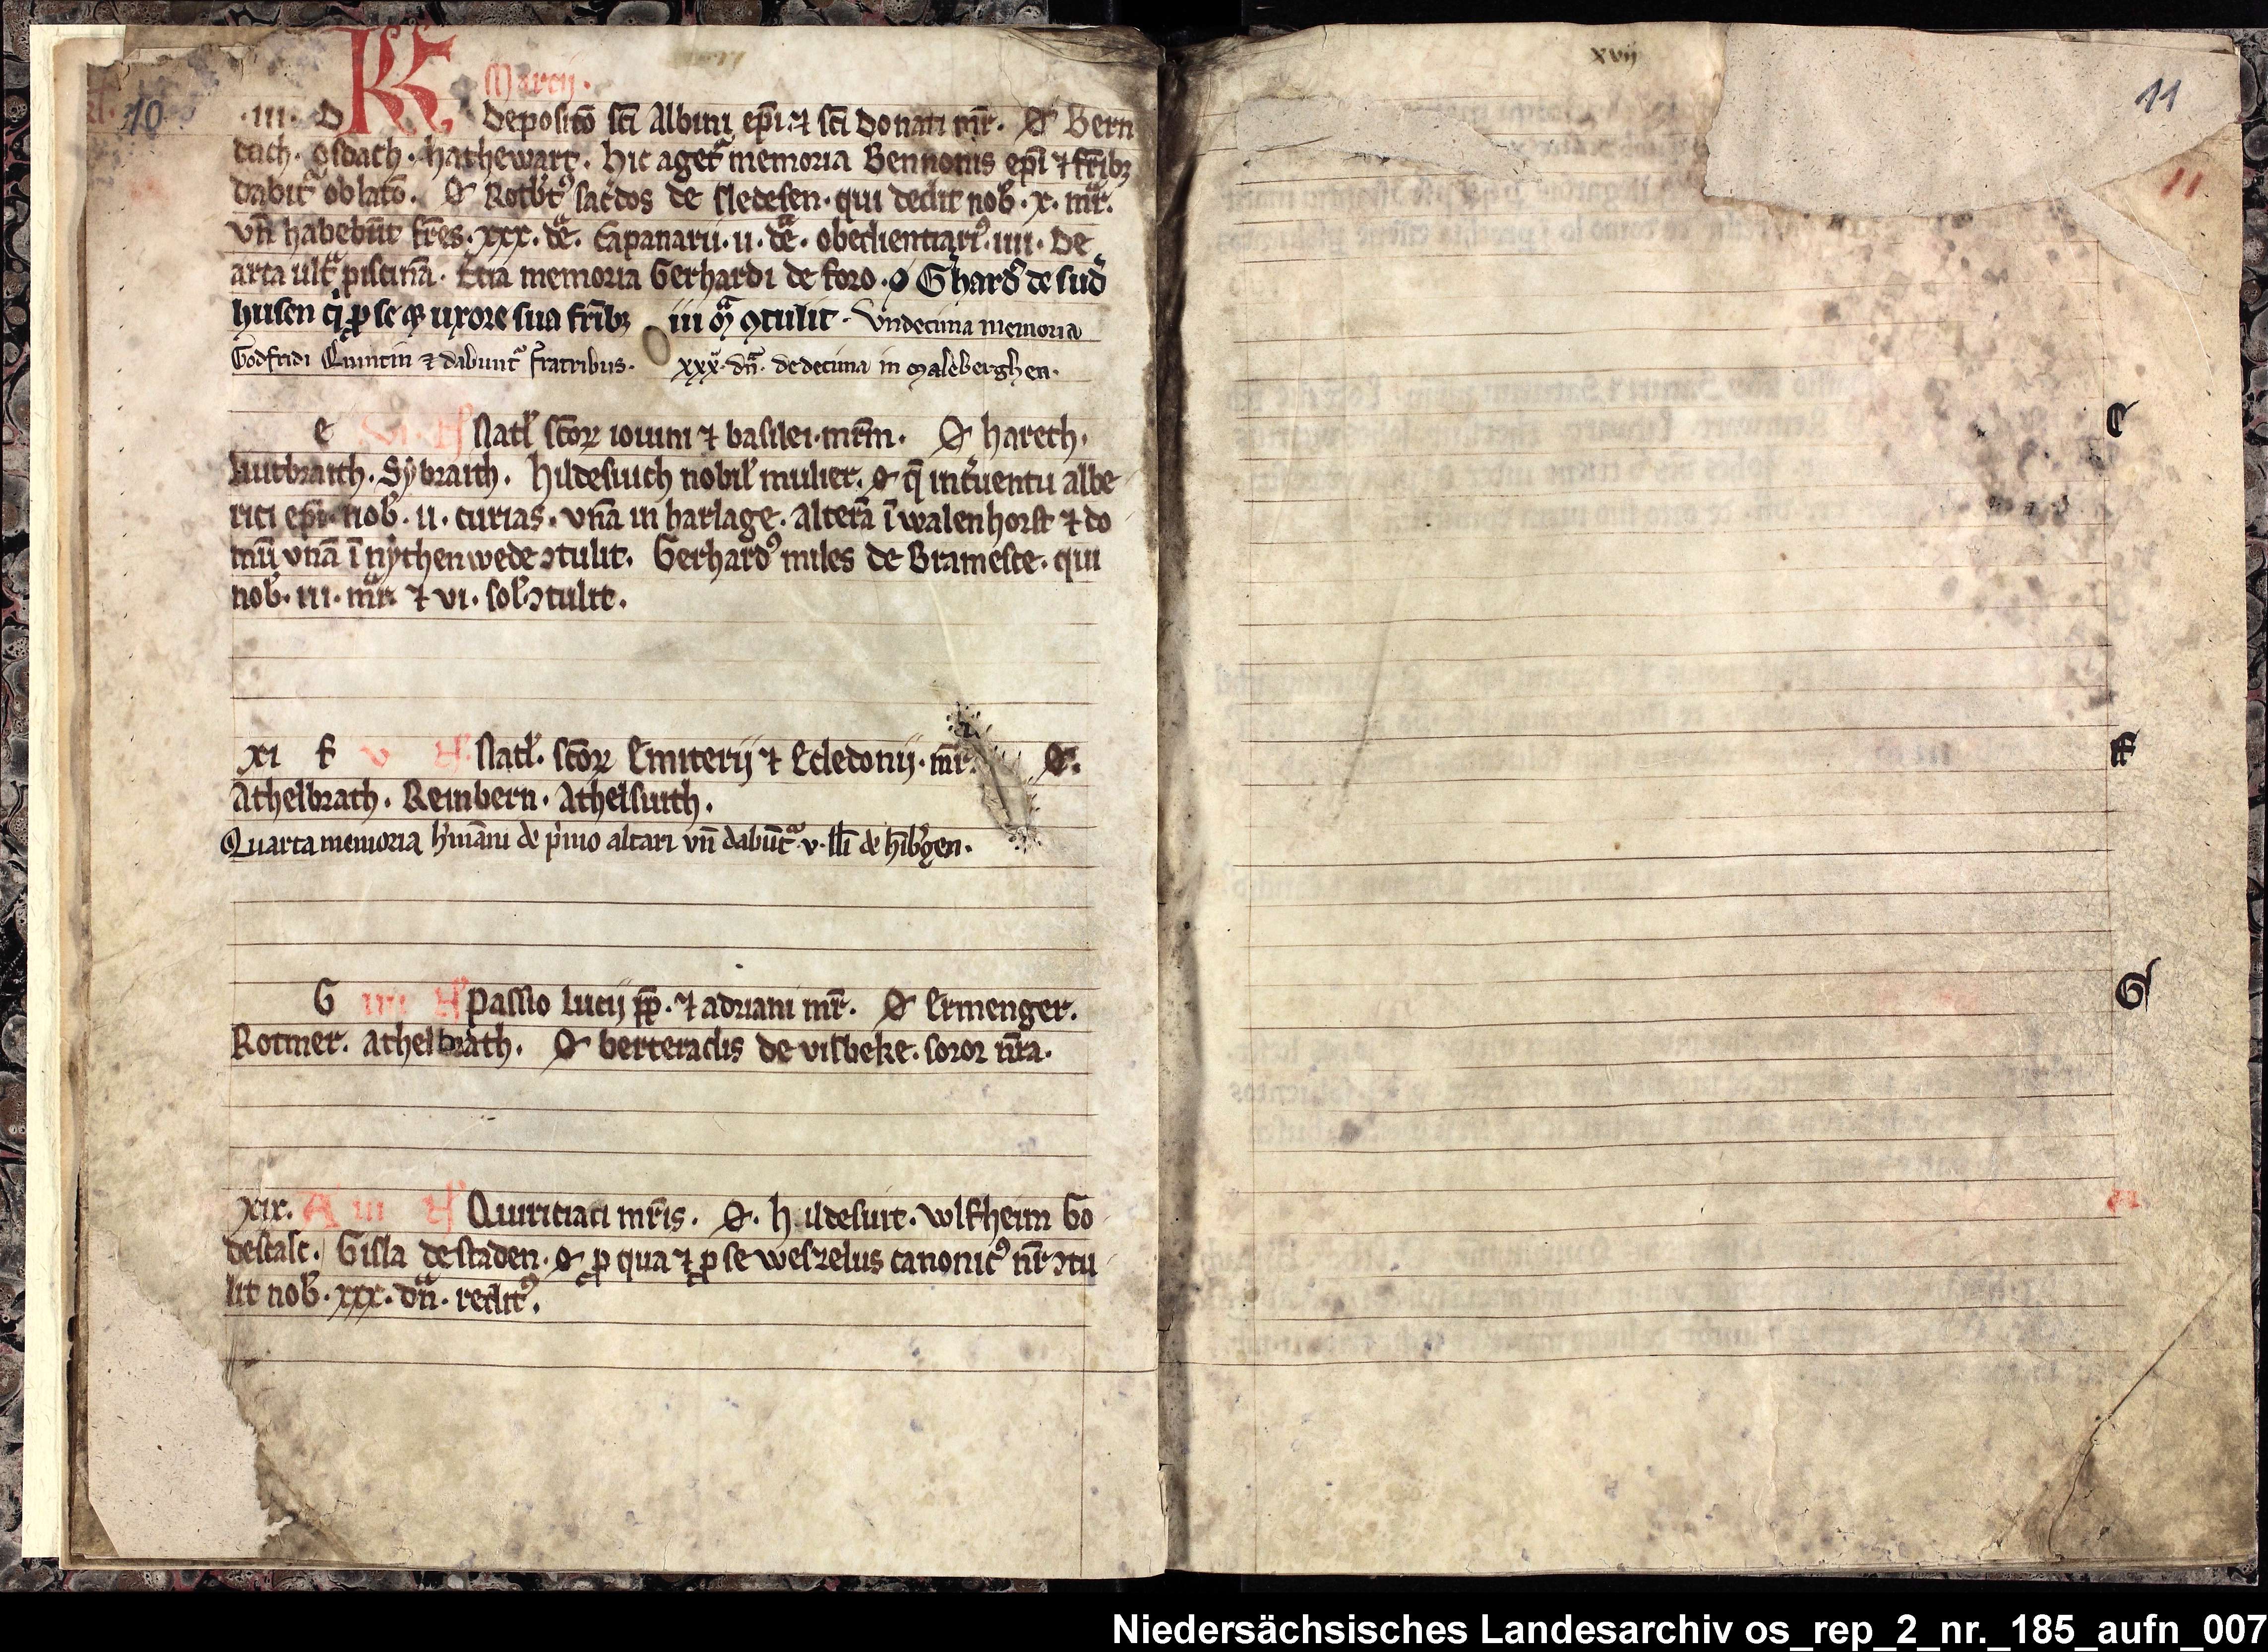 10
KL Marcij.
.iii. D Depositō scī Albini ep̄i ⁊ scī Donati mr̄. O Bern
dach. Osdach. hathewarc. hic agetͬ memoria Bennonis ep̄i ⁊ fr̄ibꝫ
dabitͬ oblatō. O Rotb̄tꝰ sac̄dos de sledesen. qui dedit nob̄. x. mr̄.
vn̄ habebūt fr̄es. xxx. dē. Cāpanarii. ii. dē. obedientiariꝰ. iiii. De
arca ultͣ piscinā. Ecia memoria Gerhardi de foro. O Ghard̄ de sud
husen qͥ ꝓ se ⁊ uxore sua fr̄ibꝫ iii mͬ ꝯtulit. Undecima memoria
Godfridi Quintin ⁊ dabuntͬ fratribus. xxx. dn̄. de decima in Maleberghen.
e vi N̄ Natl̄ scōꝝ iouini ⁊ basilei. mr̄m. O hareth.
Liutbrath. Sybrath. hildesuith nobil̄ mulier. O q̄ int̄uentu albe
rici ep̄i. nob̄. ii. curias. vnā in harlage. Alterā ī walenhorst ⁊ do
mū vnā ī nythenwede ꝯtulit. Gerhardꝰ miles de Bramesce. qui
nob̄. iii. mr̄. ⁊ vi. sol̄. ꝯtulit.
xi f v N̄ Natl̄. scōꝝ Emiterij ⁊ Celedonij. mr̄. O.
Athelbrath. Reinbern. Athelsuith.
Quarta memoria h̄māni de p̄mo altari vn̄ dabūtͬ v. sl̄i de hīb̄gen.
G iiii N̄ Passio Lucij pp̄. ⁊ adriani mr̄. O Ermenger.
Rotmer. Athelbrath. O berteradis de vilbeke. soror nr̄a.
xix. A iii N̄ Quiriciaci mr̄is. O. hildesuit. wlfheim Go
descalc. Gisla de staden. O ꝓ qua ⁊ ꝓ se weszelus canonicꝰ nr̄ ꝯtu
lit nob̄. xxx. dn̄. redit̄ꝰ.
xvij
11
11
e
F
G
A
Niedersächsisches Landesarchiv os_rep_2_nr._185_aufn_007